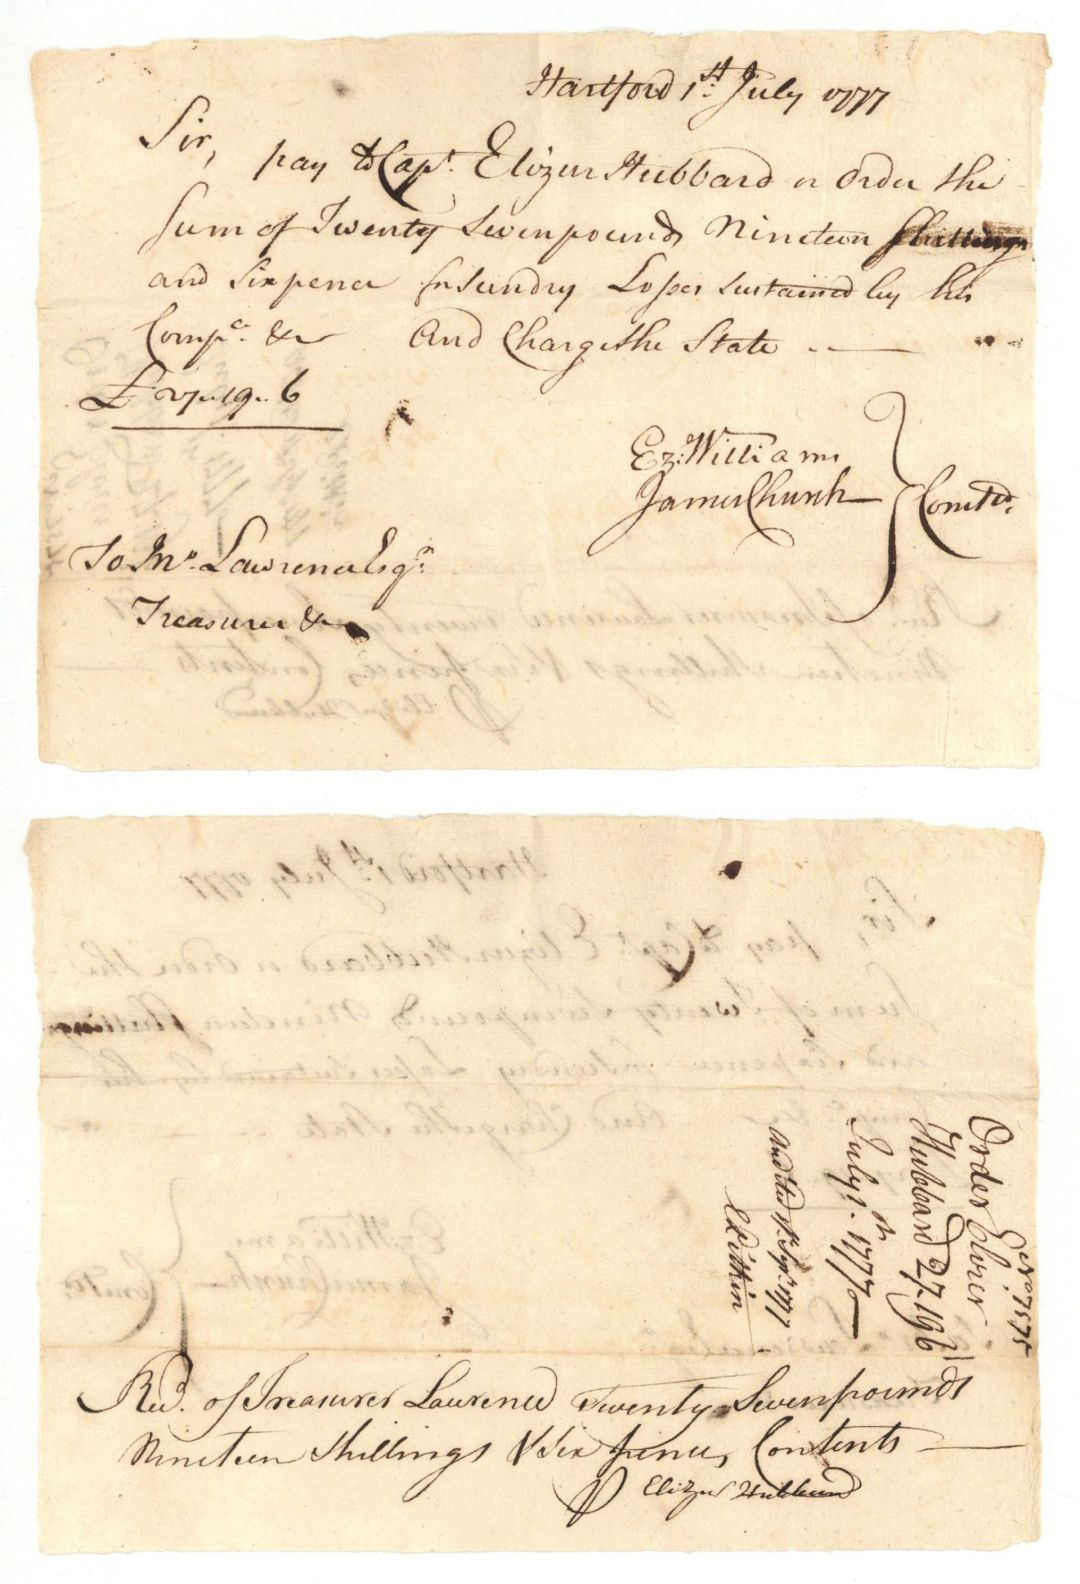 Hartford 1st July 1777
Sir,
pay to Capt. Elizur Hubbard or Order the
Sum of Twenty Sevenpounds Nineteen Shillings
and Sixpence for Sundry Losses sustained by his
Compa. &c And Charge the State
£27..19..6
Ez: Williams
James Church
Comtee.
To Jno. Lawrence Esqr.
Treasurer &c
No. 7575
Order
Hubbard 27.19.6
July 1st. 1777
Audited
Recd. of Treasurer Lawrence Twenty Sevenpounds
Nineteen Shillings & Six pence, Contents
P Elizur Hubbard